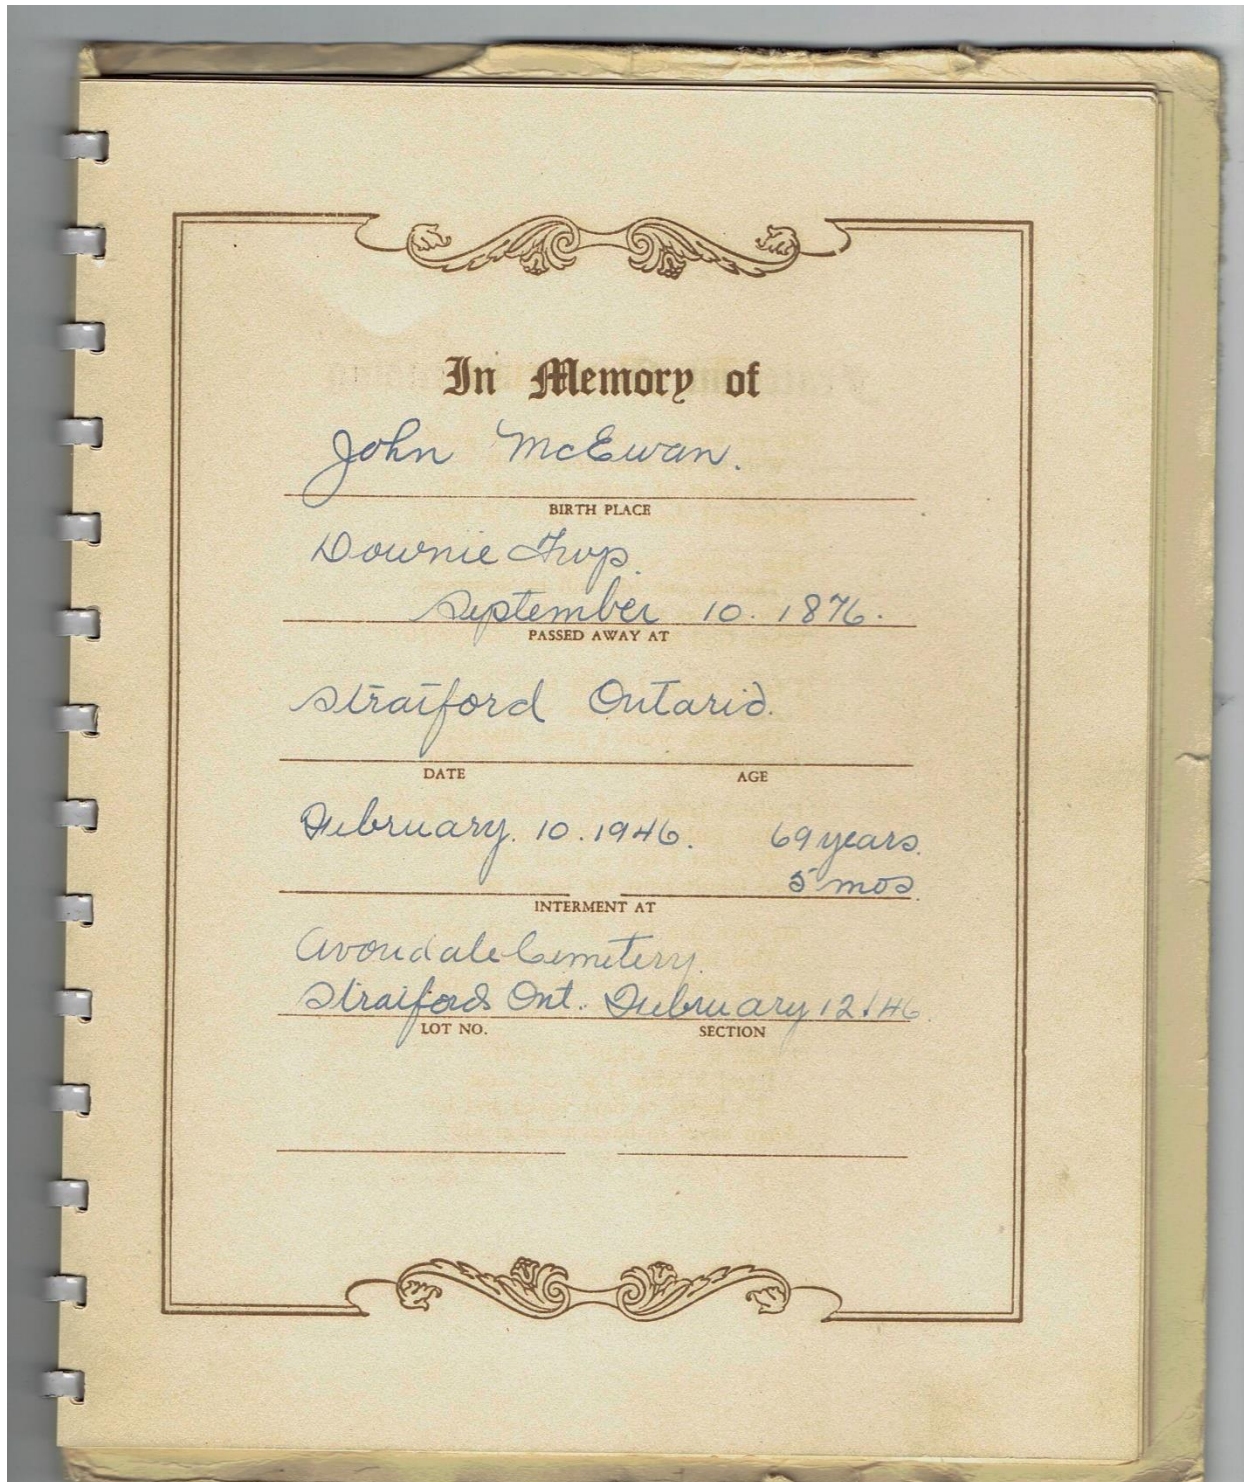 In Memory of
John McEwan.
BIRTH PLACE
Downie Twp.
September 10. 1876.
PASSED AWAY AT
Stratford Ontario.
DATE AGE
February. 10. 1946. 69 years.
5 mos.
INTERMENT AT
Avondale Cemetery.
Stratford Ont. February 12/46.
LOT NO. SECTION